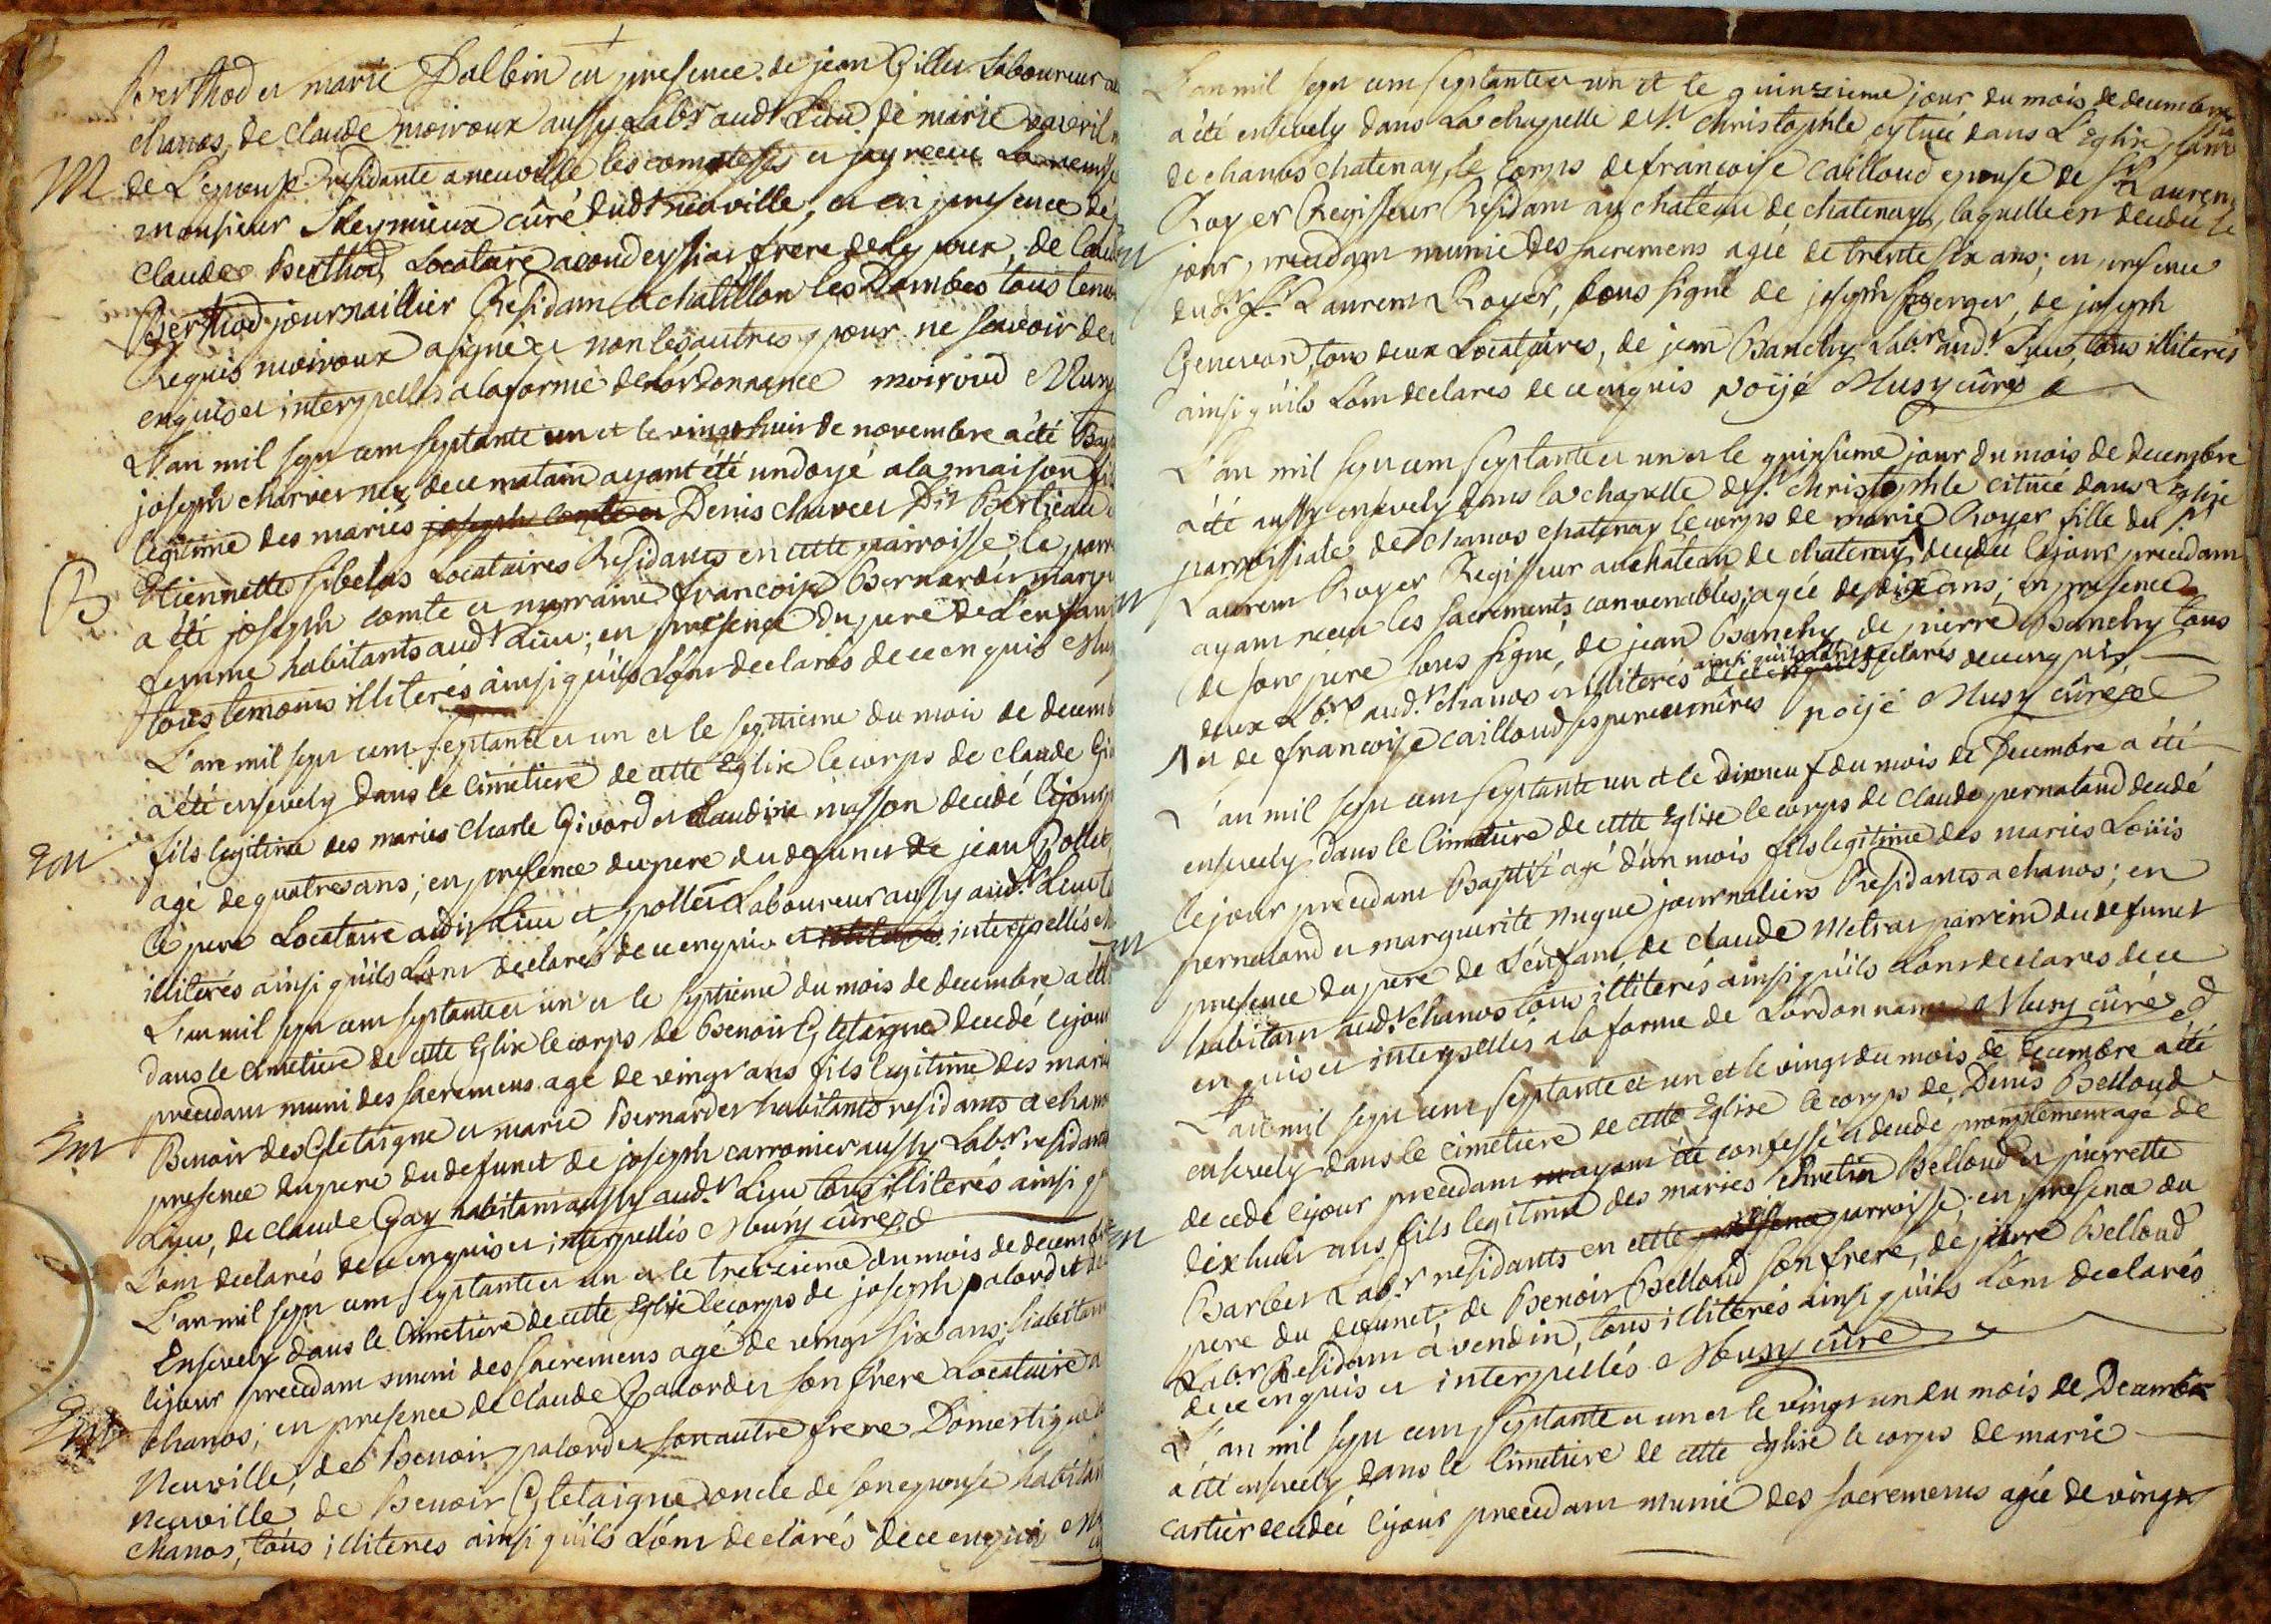 Berthod et marie Dalbin en presence de jean Gillet Laboureur a
chanos, de claude moiroux aussy Labr audt Lieu de marie
M
de L'epouse residante a neuville les comtesses et jay receu La remise
monsieur curé dudt neuville, et en presence de
claude Berthod Locataire a condeyssiat frere de Lepoux, de
Berthod journaillier Residam a chatillon les Dombes tous temo
Requis moiroux a signé et non les autres pour ne scavoir de
enquis et interpellés a la forme de Lordonnance moiroud Musy
L'an mil sept cent septante un et le vingt huit de novembre a été Bap
joseph charvet né de ce matin ayant été undoyé a la maison fi
legitime des mariés joseph comte et Denis charvet Dit Berlieau
B
Etiennette sibelas Locataires Residants en cette parroisse; le parr
a été joseph comte et marraine francoise Bernardet
femme habitants audt Lieu; en presence du pere de L'enfant
tous temoins illiterés ainsi qu'ils L'ont declarés de ce enquis Mu
L'an mil sept cent septante et un et le septieme du mois de decemb
a été ensevely dans le cimetiere de cette Eglise le corps de claude Gi
fils legitime des mariés charle Givord et claudine masson decedé le jour
Em
agé de quatres ans; en presence du pere du defunct de jean Pollet
le pere Locataire audit Lieu et pollet Laboureur aussy audt Lieu
illiterés ainsi qu'ils L'ont declarés de ce enquis et interpellés
L'an mil sept cent septante et un et le septieme du mois de decembre a été
dans le cimetiere de cette Eglise le corps de Benoit Gletaigne decedé le jour
precedam muni des sacremens agé de vingt ans fils legitime des mari
Em
Benoit des Gletaigne et marie Bernardet habitants residants a chan
presence du pere du defunct de joseph carronier aussy Labr residant
Lieu, de claude Gay habitant aussy audt Lieu tous illiterés ainsi q
L'ont declarés de ce enquis et interpellés Musy curé
L'an mil sept cent septante et un et le treizieme du mois de decemb
Ensevely dans le Cimetiere de cette Eglise le corps de joseph palordet de
le jour precedam muni des sacremens agé de vingt six ans; habitant
Em
chanos; en presence de claude palordet son frere Locataire a
Neuville, de Benoit palordet son autre frere Domestique
neuville de Benoit Gletaigne oncle de son epouse habitan
chanos; tous illiterés ainsi qu'ils L'ont declarés de ce enquis
L'an mil sept cent septante et un et le quinzieme jour du mois de decembre
a été ensevely dans La chapelle de St christophle cytuée dans L'Eglise
de chanos chatenay, le corps de francoise cailloud epouse de Sr Laurent
Royer Regisseur Residam au chateau de chatenay, laquelle est decedée le
m
jour precedam munie des sacremens agée de trente six ans; en presence
dudt Sr Laurent Royer, sous signé de joseph Berger, de joseph
Genevard, tous deux Locataires, de jean Banchy Labr audt Lieu, tous illiterés
ainsi qu'ils L'ont declarés de ce enquis Royé Musy curé
L'an mil sept cent septante et un et le quinsieme jour du mois de decembre
a été aussy ensevely dans la chapelle de St christophle cituée dans L'Eglise
parroissiale de chanos chatenay le corps de marie Royer fille du Sr
m
Laurent Royer Regisseur au chateau de chatenay /\ decedée le jour precedam
ayam receu les sacrements convenables; agée de dix ans; en presence
de son pere sous signé, de jean Banchy, de pierre Banchy tous
deux Lbrs audt chanos et illiterés de ce enquis ainsi qu'ils L'ont declarés de ce enquis
/\ et de francoise cailloud ses pere et meres Royé Musy curé
L'an mil sept cent septante un et le dixneuf du mois de Decembre a été
ensevely dans le Cimetiere de cette Eglise le corps de claude pernataud decedé
le jour precedam Baptisé agé d'un mois fils legitime des mariés Louis
m
pernataud et marguerite nugue journaliers Residants a chanos; en
presence du pere de L'enfant, de claude metras parrein du defunct
habitant audt chanos tous illiterés ainsi qu'ils L'ont declarés de ce
enquis et interpellés a la forme de Lordonnance Musy curé
L'an mil sept cent septante et un et le vingt du mois de decembre a été
ensevely dans le cimetiere de cette Eglise le corps de Denis Belloud
decedé le jour precedam ayant été confessé et decedé promptement agé de
m
dixhuit ans fils legitime des mariés chretin Belloud et pierrette
Barbet Labr residants en cette presence parroisse; en presence du
pere du defunct, de Benoit Belloud son frere, de pierre Belloud
Labr Residam a vendin, tous illiterés ainsi qu'ils L'ont declarés
de ce enquis et interpellés Musy curé
L'an mil sept cent septante et un et le vingt un du mois de Decembre
a été ensevely dans le Cimetiere de cette Eglise le corps de marie
cartier decedée le jour precedam munie des sacremens agée de vingt